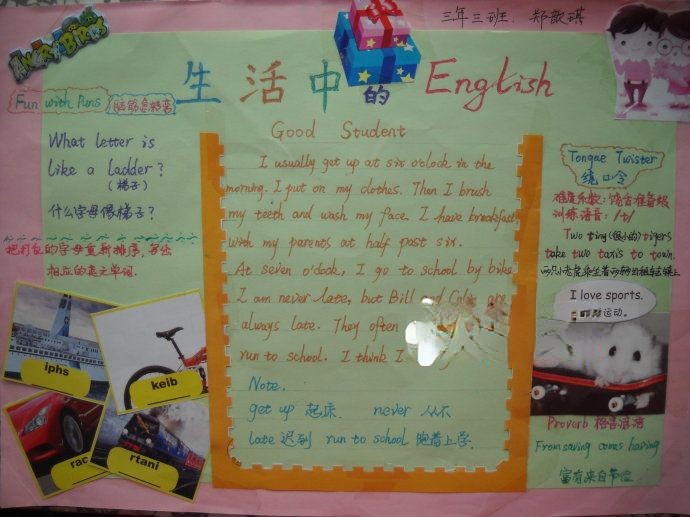 三年三班. 郑歆琪
ANGRY BIRDS
生活中的 English
Fun with Puns
脑筋急转弯
What letter is
like a ladder?
(梯子)
什么字母像梯子?
把打乱的字母重新排序,写出
相应的英文单词.
iphs
keib
rac
rtani
Good Student
I usually get up at six o'clock in the
morning. I put on my clothes. Then I brush
my teeth and wash my face. I have breakfast
with my parents at half past six.
At seven o'clock, I go to school by bike.
I am never late, but Bill and are
always late. They often
run to school. I think I
Note.
get up 起床. never 从不
late 迟到 run to school 跑着上学.
Tongue Twister
绕口令
难度系数: 饶舌准备级
训练语音: /t/
Two tiny (很小的) tigers
take two taxis to town.
两只小老虎乘坐着两辆出租车去镇上
I love sports.
运动。
Proverb 格言谚语
From saving comes having
富有来自节俭